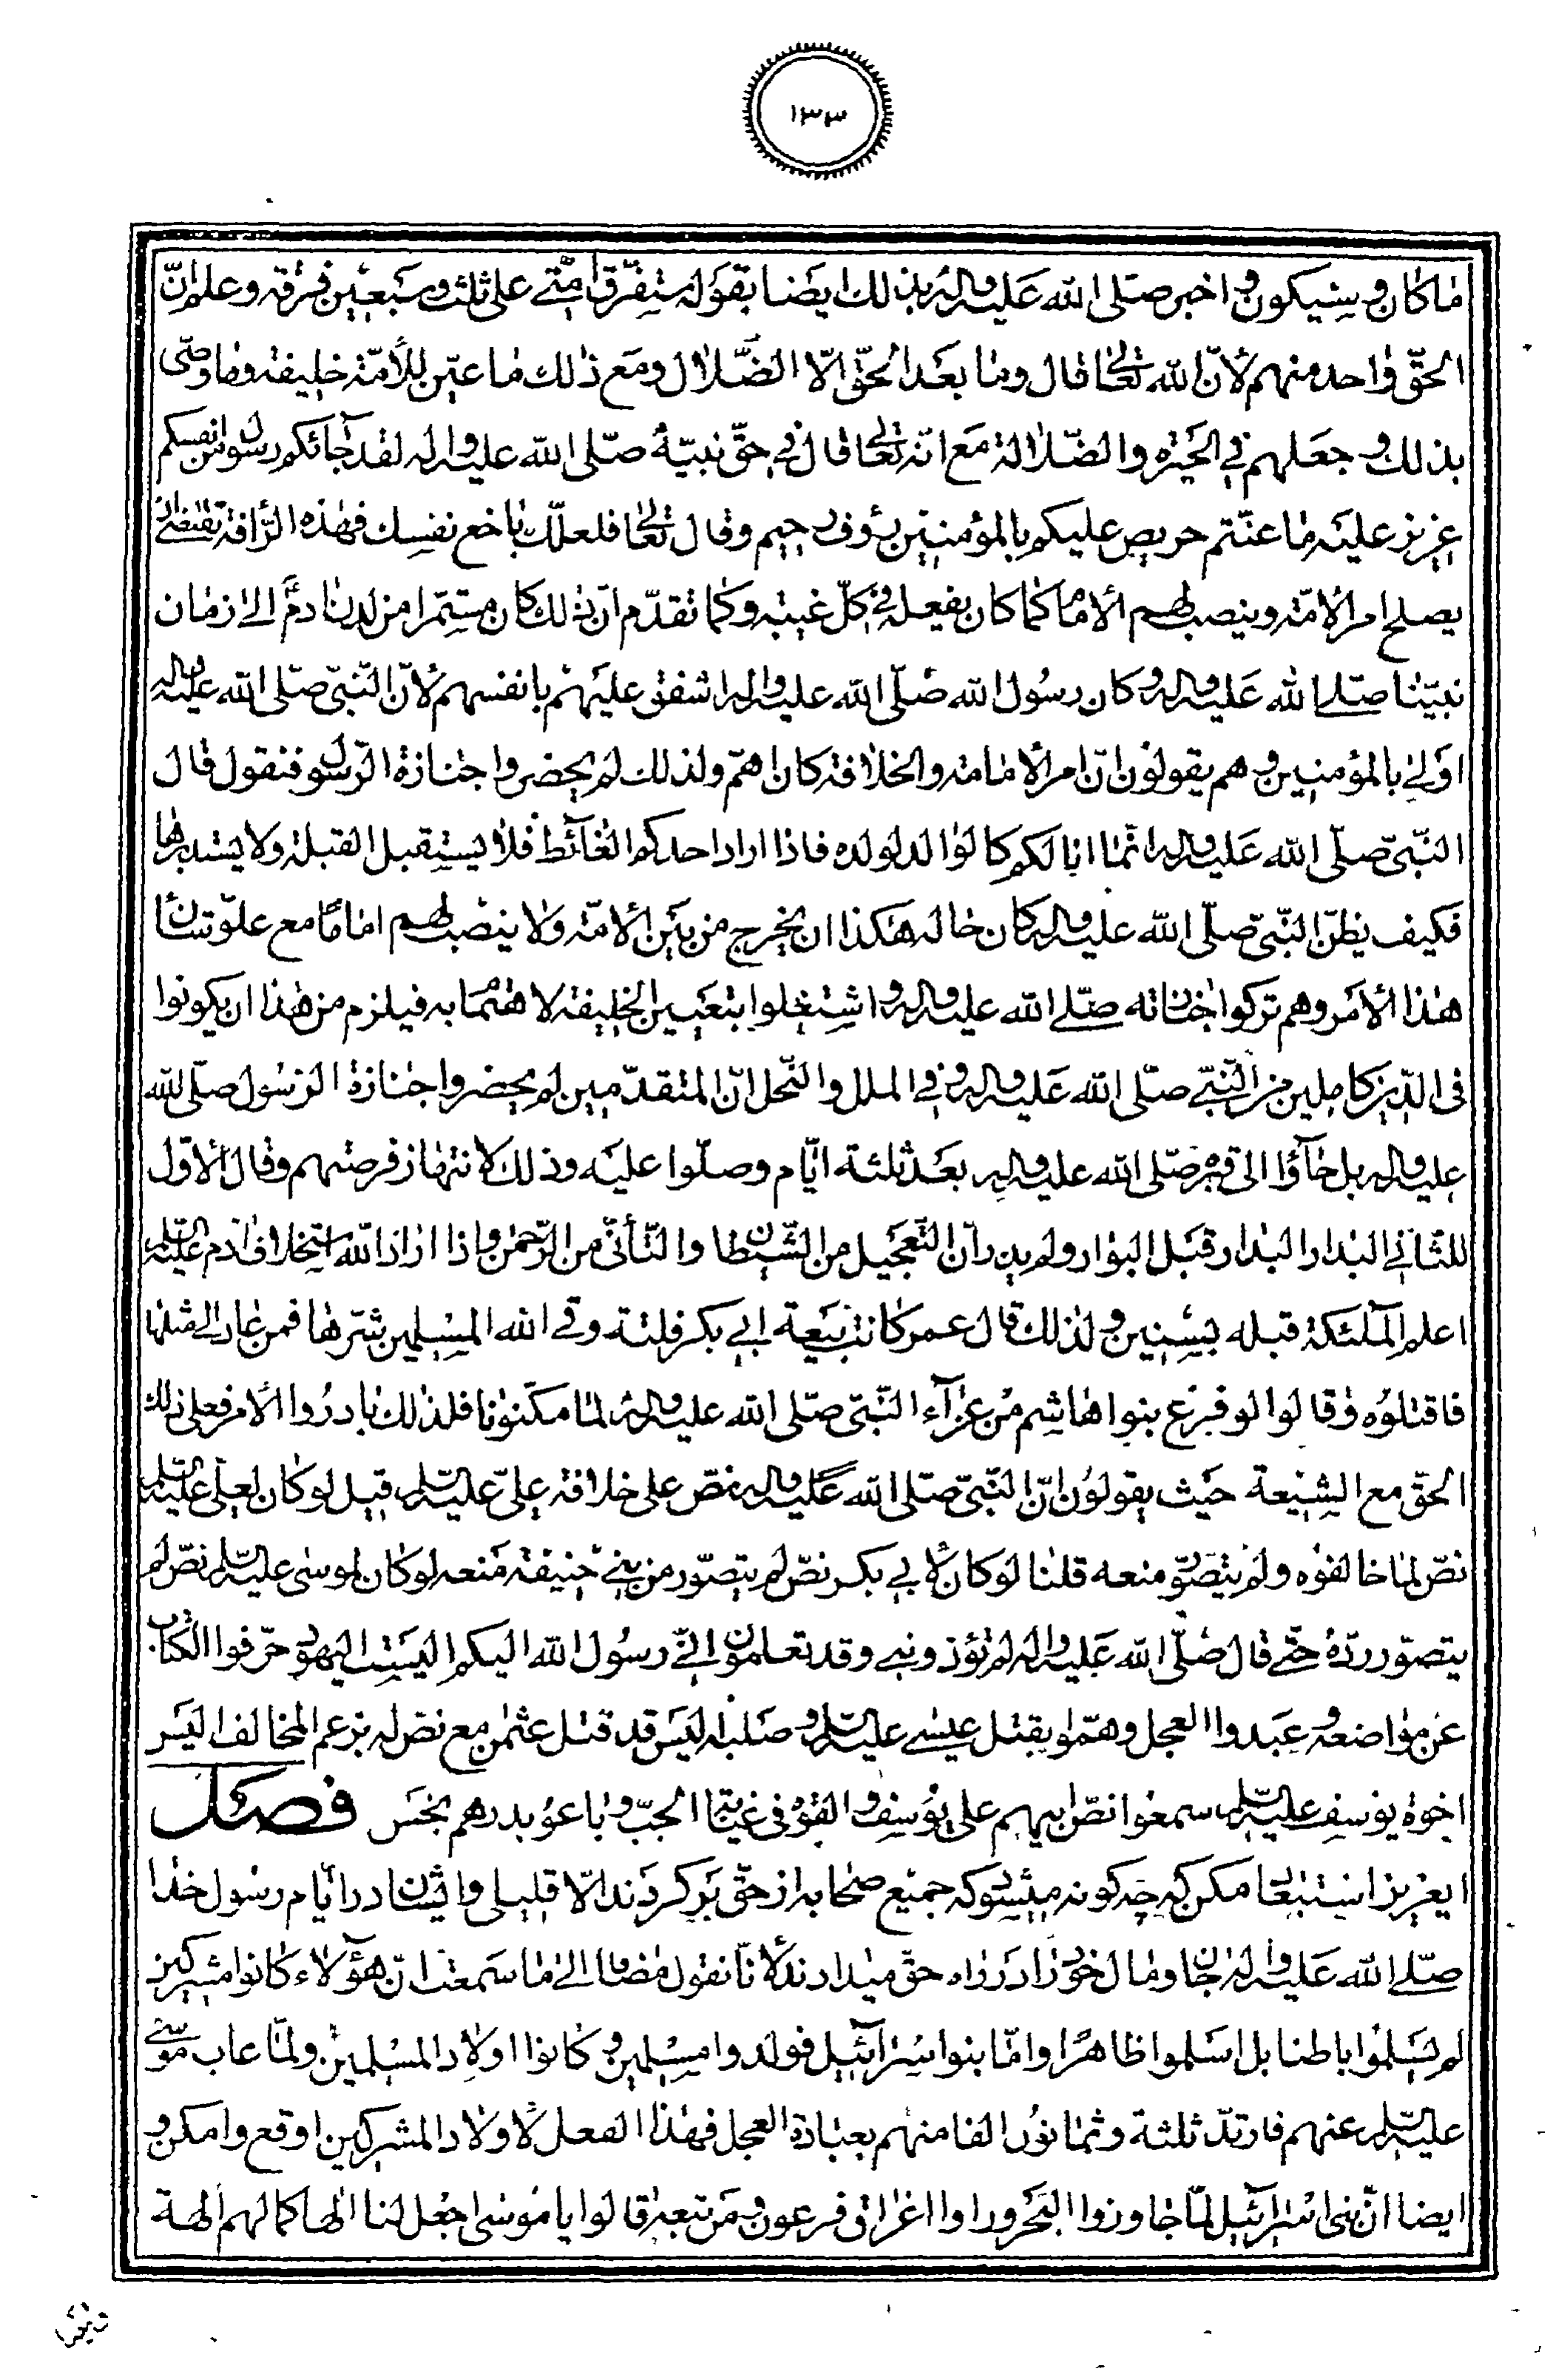 ١٣٣
ما كان و سيكون و اخبر صلى الله عليه واله بذلك ايضا بقوله ستفرق امتى على ثلث وسبعين فرقه وعلم انّ
الحقّ واحد منهم لأنّ الله تعالى قال وما بعد الحقّ الّا الضّلال ومع ذلك ما عيّن للأمّة خليفة وما وصّى
بذلك و جعلهم في الحيرة والضّلالة مع انّه تعالى قال في حقّ نبيّه صلّى الله عليه واله لقد جائكم رسول من انفسكم
عزيز عليه ما عنتم حريص عليكم بالمؤمنين رؤوف رحيم وقال تعالى فلعلّك باخع نفسك فهذه الرّأفة تقتضى ان
يصلح امر الامّة وينصب لهم الاماما كما كان يفعله في كلّ غيبة وكما تقدّم انّ ذلك كان مستمرا من لدن ادم الى زمان
نبيّنا صلى الله عليه واله وكان رسول الله صلّى الله عليه واله اشفق عليهم بانفسهم لأنّ النّبىّ صلى الله عليه واله
اولى بالمؤمنين و هم يقولون انّ امر الامامة والخلافة كان اهمّ ولذلك لم يحضروا جنازة الرّسول فنقول قال
النّبىّ صلّى الله عليه واله انّما انا لكم كالوالد لولده فاذا اراد احدكم الغائط فلا يستقبل القبلة ولا يستدبرها
فكيف يظنّ النّبىّ صلّى الله عليه واله كان حاله هكذا ان يخرج من بين الامّة ولا ينصب لهم اماما مع علوّ شأن
هذا الأمر وهم تركوا جنازته صلى الله عليه واله و اشتغلوا بتعيين الخليفة لاهتمامه به فيلزم من هذا ان يكونوا
فى الدّين كاملين من النّبىّ صلّى الله عليه واله و في الملل والنّحل انّ المتقدّمين لم يحضروا جنازة الرسول صلّى الله
عليه واله بل جاؤا الى قبره صلى الله عليه واله بعد ثلثة ايّام وصلّوا عليه وذلك لانتهاز فرصتهم وقال الاوّل
للثّانى البدار البدار قبل البوار ولم يدر انّ التّعجيل من الشّيطان والتّأنّى من الرّحمن و اذا اراد الله استخلاف ادم عليه السلم
اعلم الملئكة قبله بسنين و لذلك قال عمر كانت بيعة ابى بكر فلتة وقى الله المسلمين شرّها فمن عاد الى مثلها
فاقتلوه و قالوا لو فرغ بنوا هاشم من عزآء النّبىّ صلى الله عليه واله لما مكّنونا فلذلك بادروا الأمر فعلى ذلك
الحقّ مع الشيعة حيث يقولون انّ النّبىّ صلى الله عليه واله نصّ على خلافة علىّ عليه السلم قيل لو كان لعلى عليه السلم
نصّ لما خالفوه ولم يتصوّر منعه قلنا لو كان لأبى بكر نصّ لم يتصوّر من بنى حنيفة منعه لو كان لموسى عليه السلم نصّ لم
يتصوّر ردّه حتى قال صلّى الله عليه واله لم تؤذوننى وقد تعلمون انّى رسول الله اليكم اليست اليهود حرّفوا الكتاب
عن مواضعه و عبدوا العجل وهمّوا بقتل عيسى عليه السلم و صلبه اليس قد قتل عثمن مع نصّ له بزعم المخالف اليس
اخوة يوسف عليه السلم سمعوا نصّ ابيهم على يوسف و القوه فى غيابت الجبّ و باعوه بدرهم بخس فصل
ايعزيز استبعاد مكن كه چه كونه ميشود كه جميع صحابه از حق بركردند الّا قليلى و ايشان در ايّام رسول خدا
صلّى الله عليه واله جان و مال خود را در راه حق ميدادند لأنّا نقول مضافا الى ما سمعت انّ هؤلاء كانوا مشركين
لم يسلموا باطنا بل اسلموا ظاهرا وامّا بنوا سرائيل فولدوا مسلمين و كانوا اولاد المسلمين ولمّا غاب موسى
عليه السلم عنهم فارتدّ ثلثة وثمانون الفا منهم بعبادة العجل فهذا الفعل لأولاد المشركين اوقع وامكن و
ايضا انّ بنى اسرائيل لمّا جاوزوا البحر وراوا اغراق فرعون و من تبعه قالوا يا موسى اجعل لنا الها كما لهم الهة